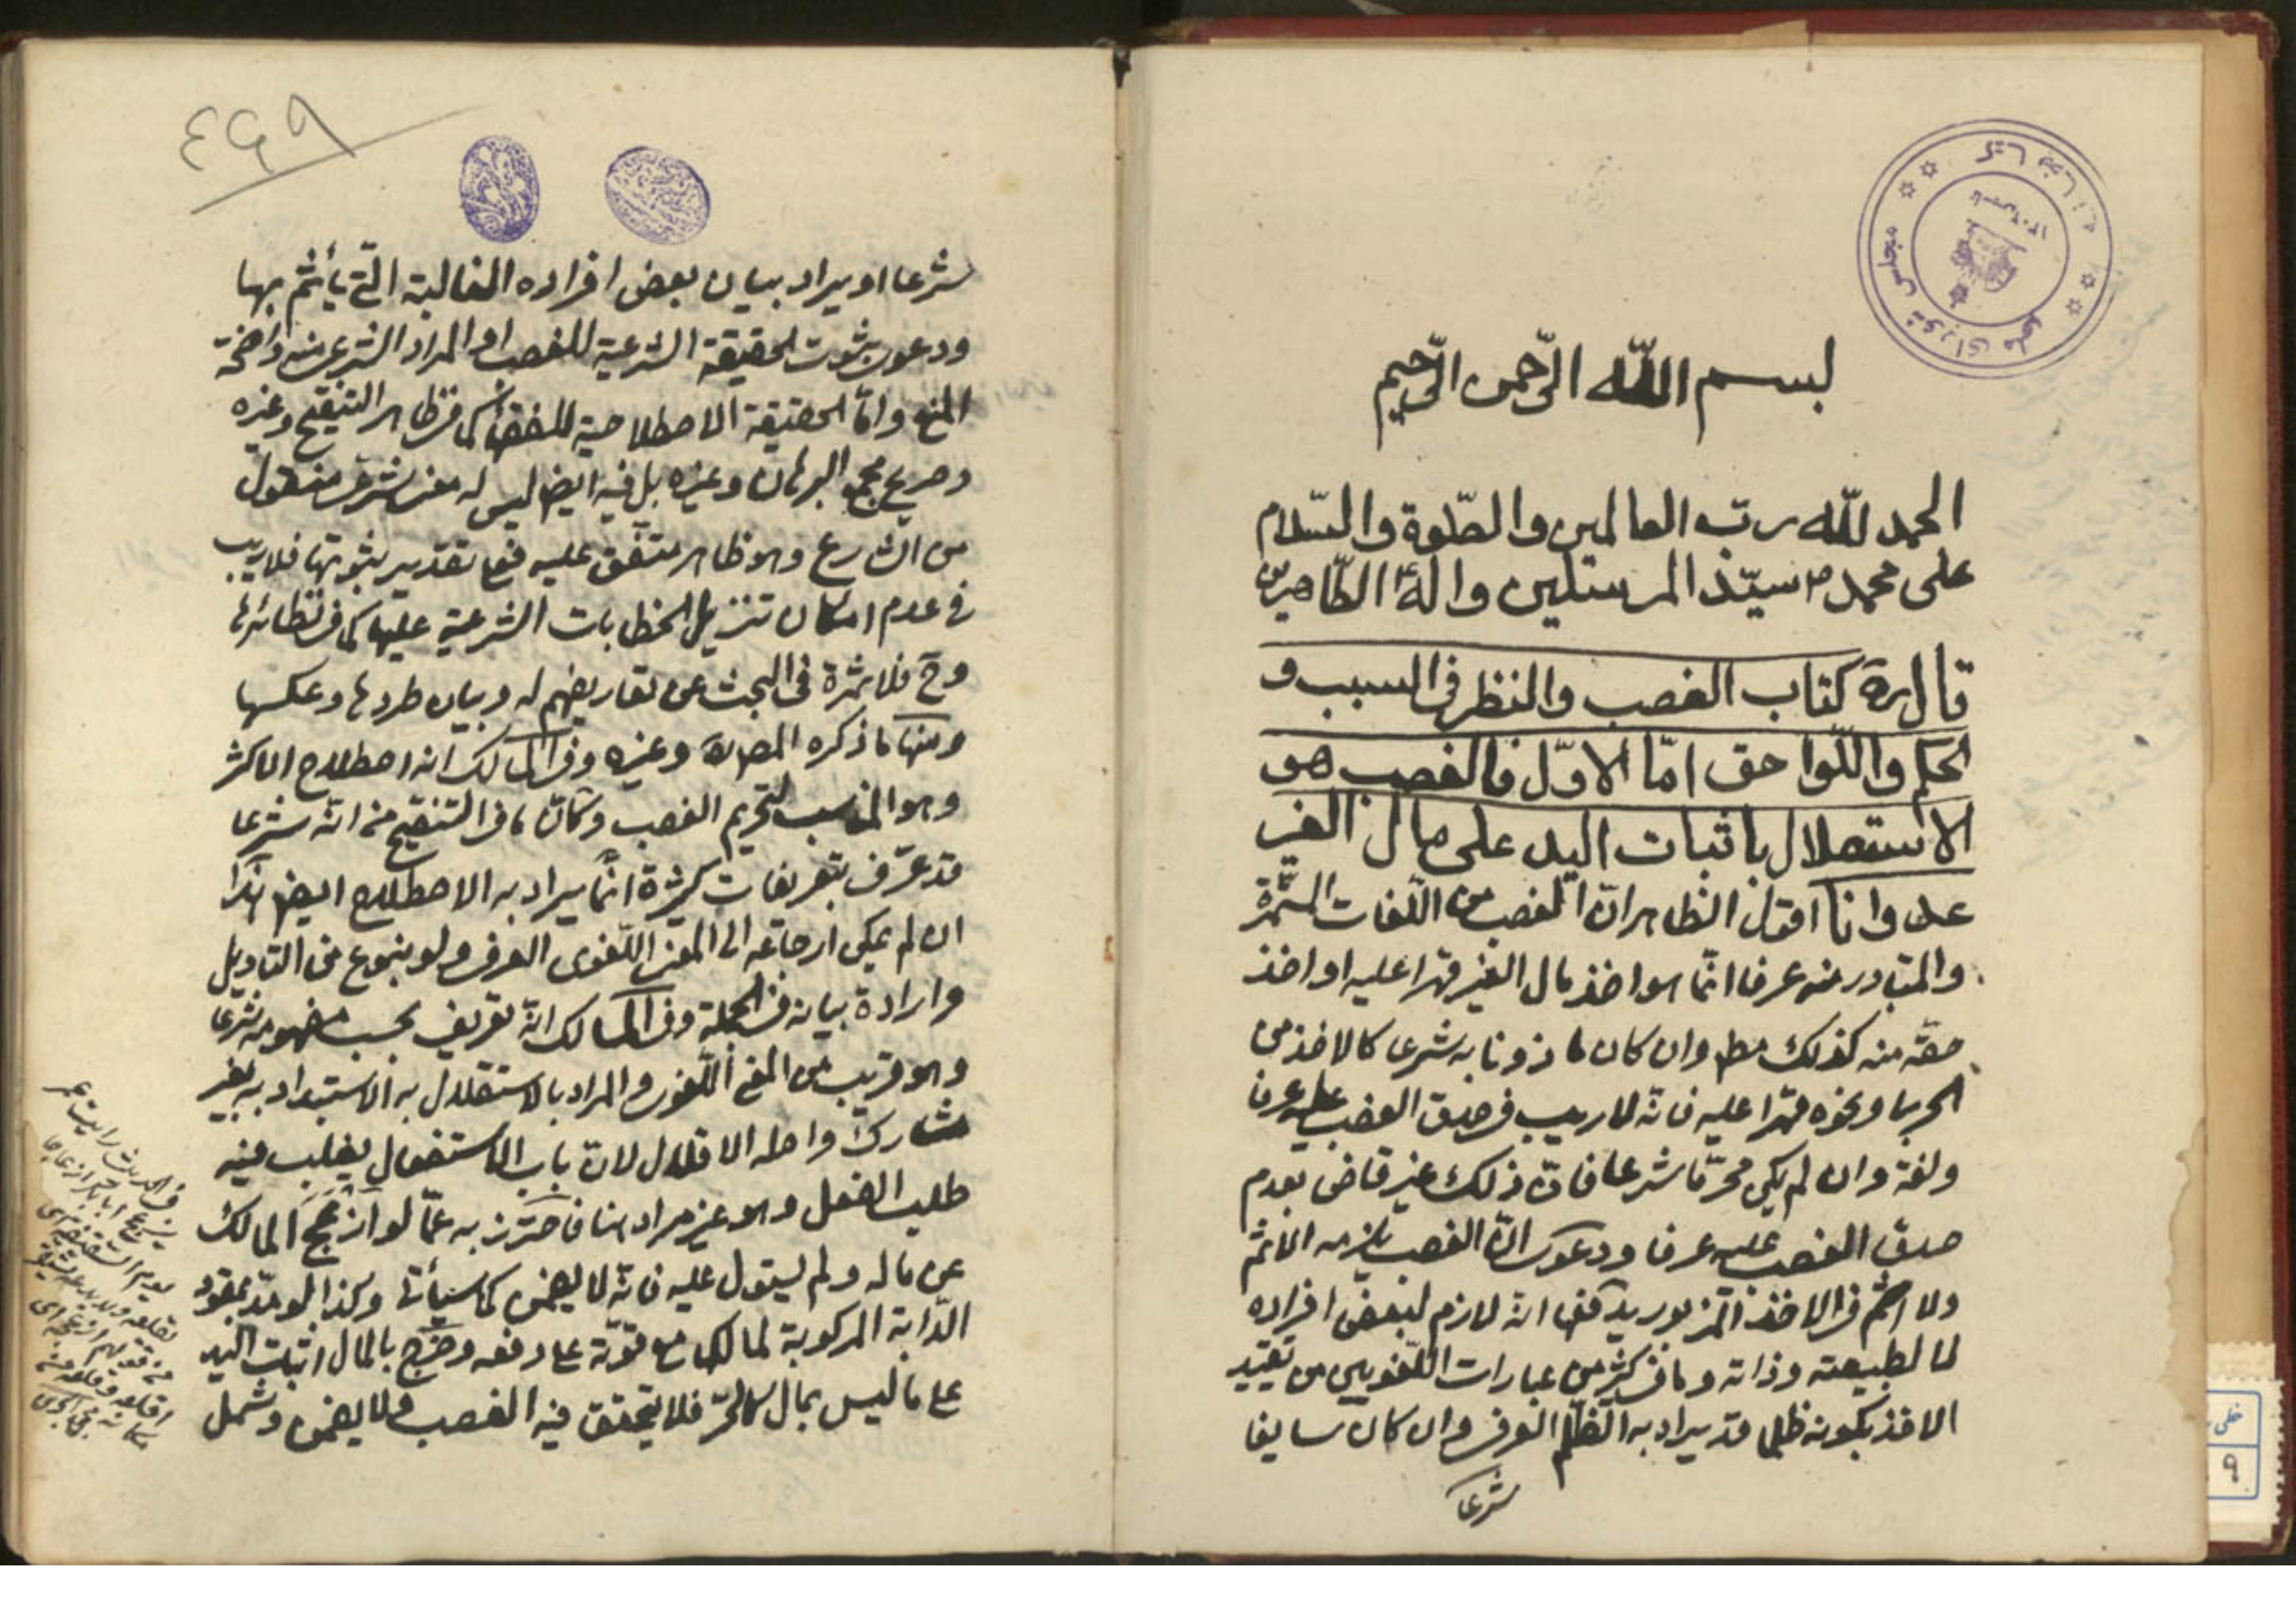 بسم اللّه الرّحمن الرّحيم
الحمد للّه ربّ العالمين والصّلوة والسّلام
على محمد ص سيّد المرسلين وآله الطّاهرين
قال ره كتاب الغصب والنظر في السبب و
الحكم واللّواحق امّا الاوّل فالغصب هو
الاستقلال باثبات اليد على مال الغير
عدوانا اقول الظاهر انّ الغصب من اللّغات
والمتبادر منه عرفا انّما هو اخذ مال الغير قهرا عليه او اخذ
حقّه منه كذلك مط وان كان ماذونا به شرعا كالاخذ من
الحربى ونحوه قهرا عليه فانّه لا ريب في صدق الغصب عليه عرفا
ولغة وان لم يكن محرّما شرعا فانّ ذلك غير قاض بعدم
صدق الغصب عليه عرفا ودعوى انّ الغصب يلزمه الاثم
ولا اثم في الاخذ المزبور يدفعها انّه لازم لبعض افراده
لا لطبيعته وذاته وما في كثير من عبارات اللّغويين من تقييد
الاخذ بكونه ظلما قد يراد به الظلم العرفى وان كان سايغا
شرعا
٤٤٩
شرعا او يراد بيان بعض افراده الغالبة الّتى يأثم بها
ودعوى ثبوت الحقيقة الشرعية للغصب او المراد الشرعى منه واضحة
المنع وامّا الحقيقة الاصطلاحية للفقهاء كما في ظاهر التنقيح وغيره
وصريح مجمع البرهان وغيره بل فيه ايضا ليس له معنى شرعى منقول
من الشارع وهو ظاهر متفق عليه فعلى تقدير ثبوتها فلا ريب
في عدم امكان تنزيل الخطابات الشرعية عليها كما في نظائرها
وح فلا ثمرة في البحث عن تعاريفهم له وبيان طردها وعكسها
ومنها ما ذكره المص ره وغيره وفى المسالك انّه اصطلاح الاكثر
وهو المناسب لتحريم الغصب وكانّ ما في التنقيح من انّه شرعا
قد عرّف بتعريفات كثيرة انّما يراد به الاصطلاح ايضا هذا
ان لم يمكن ارجاعه الى المعنى اللّغوى العرفى ولو بنوع من التاويل
وارادة بيانه في الجملة وفى المسالك انّه تعريف بحسب مفهومه شرعا
وهو قريب من المعنى اللّغوى والمراد بالاستقلال به الاستبداد به بغير
مشارك واصله الاقلال لانّ باب الاستفعال يغلب فيه
طلب الفعل وهو غير مراد هنا فاحترز به عمّا لو ازعج المالك
عن ماله ولم يستول عليه فانّه لا يضمن كما سيأتى وكذا لو مدّ بمقود
الدّابة المركوبة لمالكها مع قوّته على دفعه وخرج بالمال اثبات اليد
على ما ليس بمال كالحرّ فلا يتحقق فيه الغصب ولا يضمن وشمل